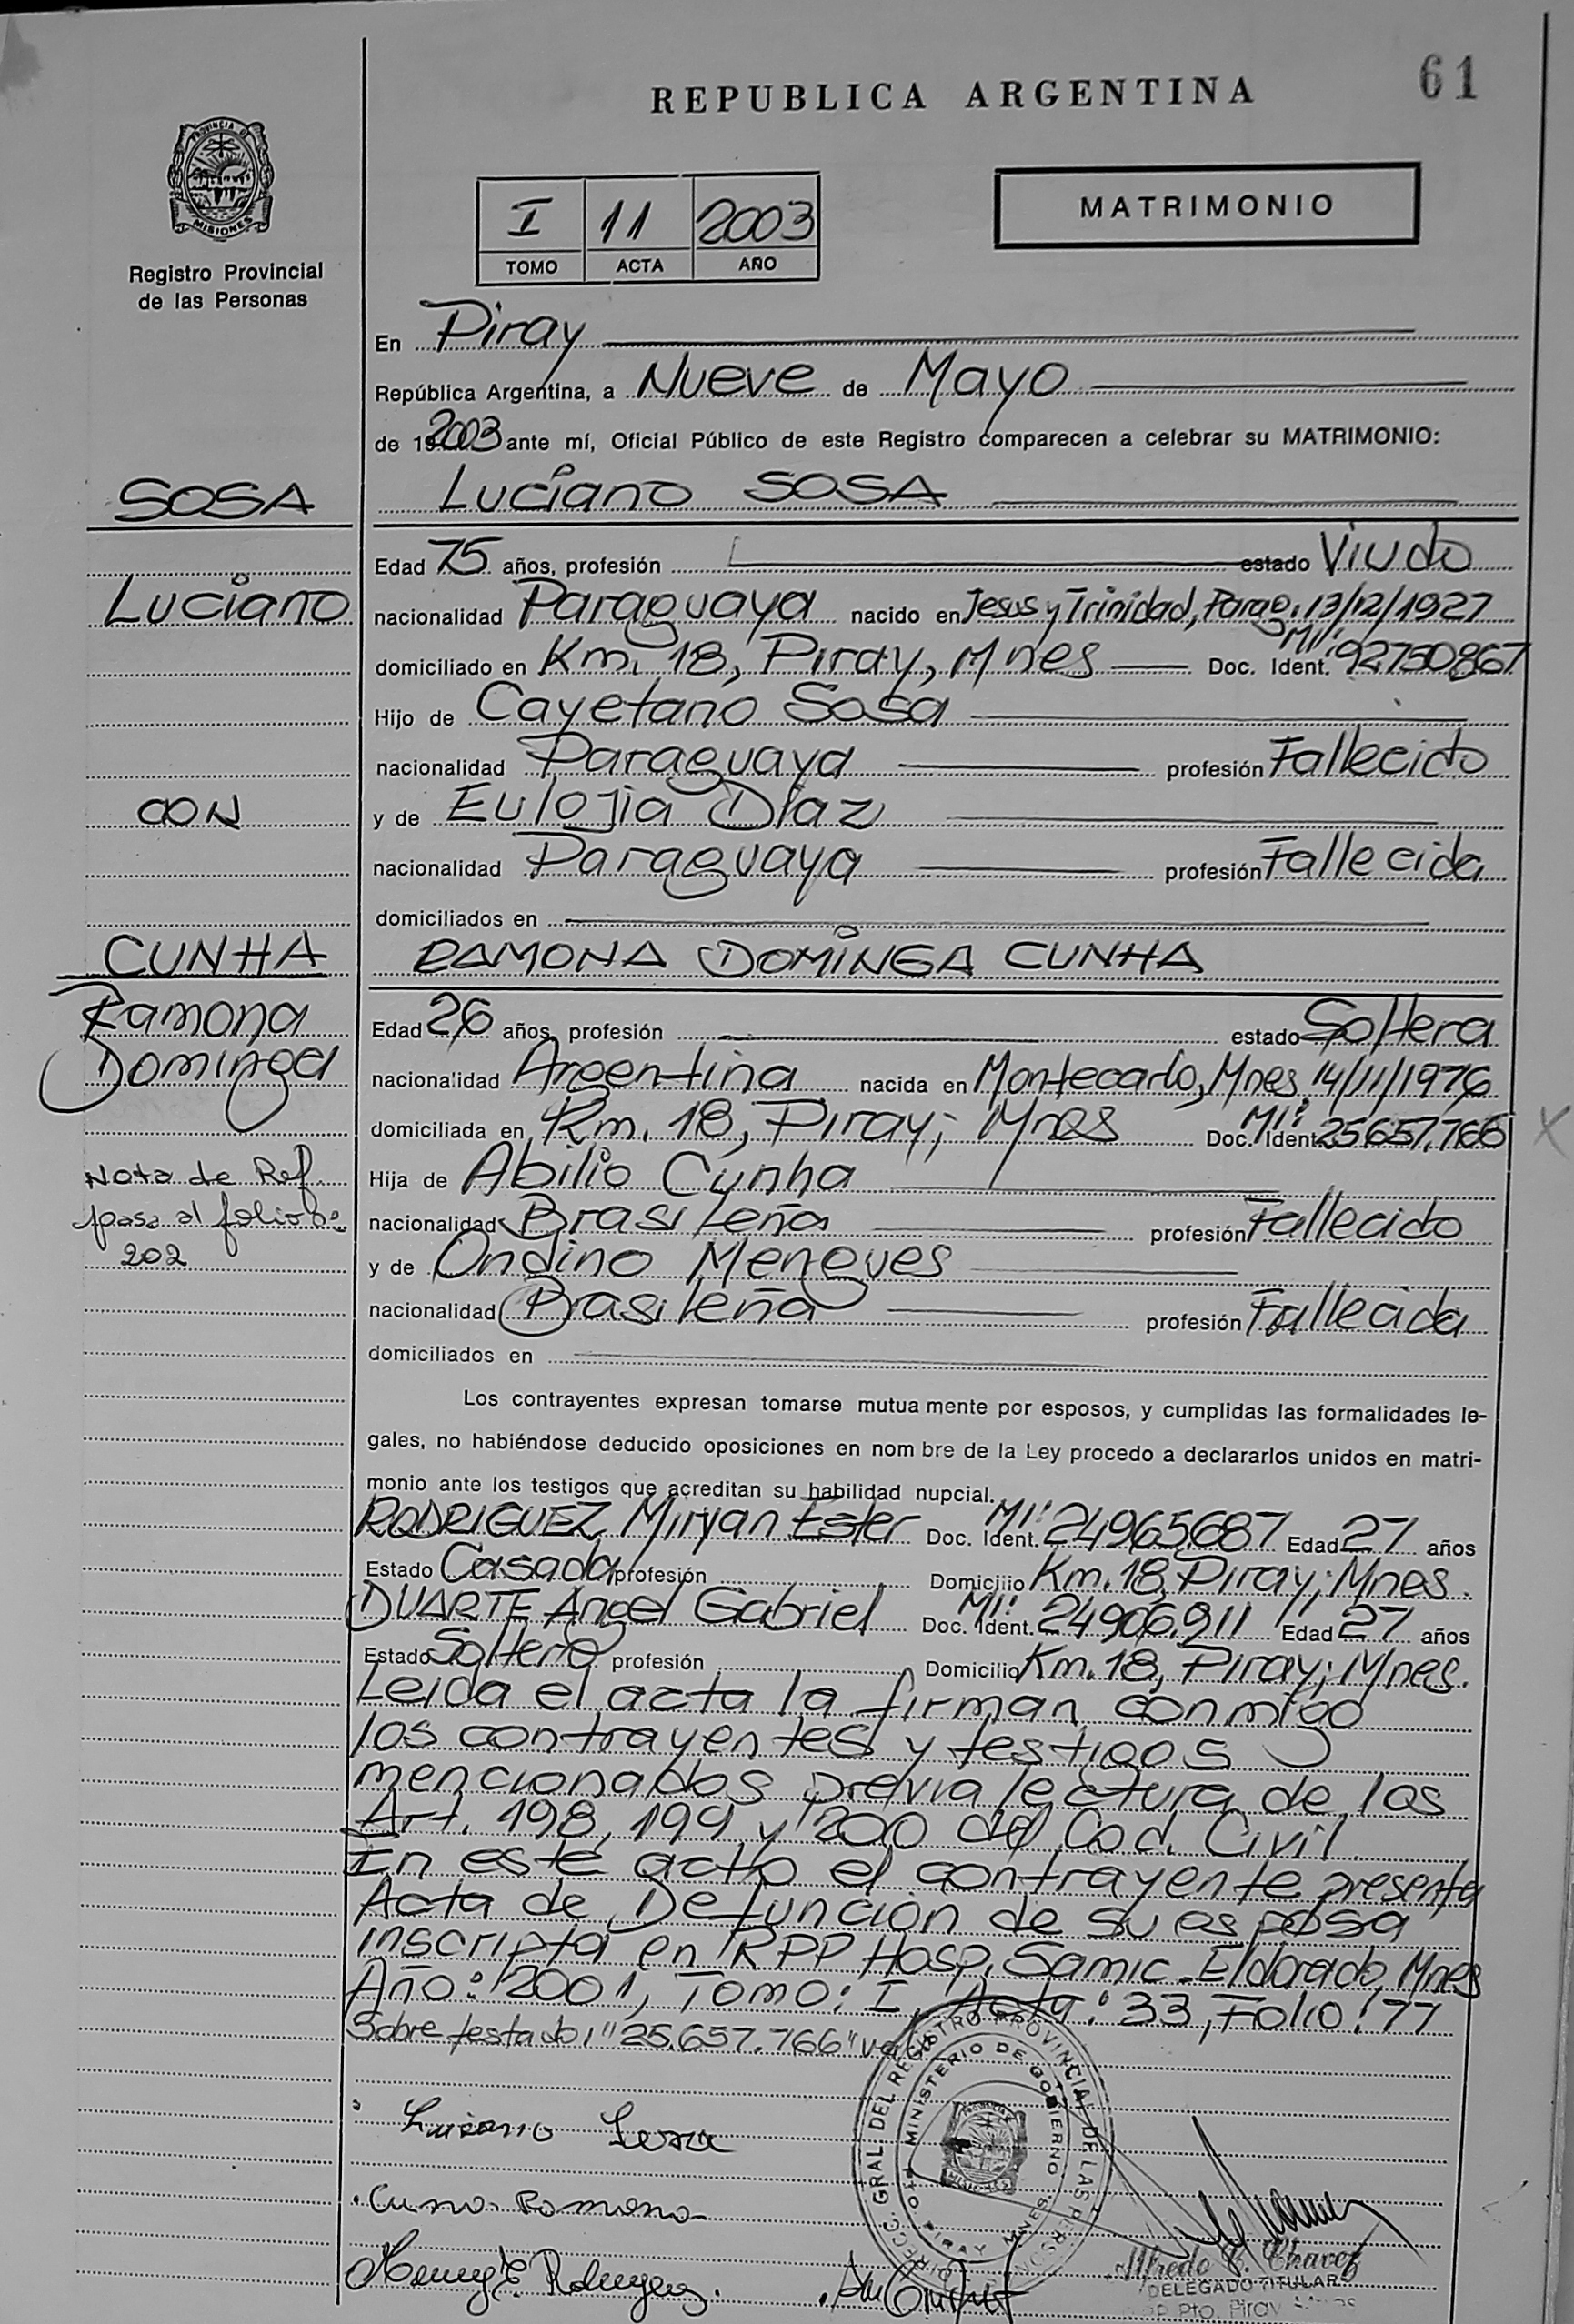 REPUBLICA ARGENTINA
61
PROVINCIA DE
MISIONES
Registro Provincial
de las Personas
I 11 2003
TOMO ACTA AÑO
MATRIMONIO
En Piray
República Argentina, a Nueve de Mayo
de 192003 ante mí, Oficial Público de este Registro comparecen a celebrar su MATRIMONIO:
SOSA
Luciano SOSA
Edad 75 años, profesión estado Viudo
Luciano
nacionalidad Paraguaya nacido en Jesus y Trinidad, Parag. 13/12/1927
domiciliado en Km. 18, Piray, Mnes Doc. Ident. MI: 92750867
Hijo de Cayetano Sosa
nacionalidad Paraguaya profesión Fallecido
CON
y de Eulojia Diaz
nacionalidad Paraguaya profesión Fallecida
domiciliados en
CUNHA
RAMONA DOMINGA CUNHA
Ramona
Edad 26 años, profesión estado Soltera
Dominga
nacionalidad Argentina nacida en Montecarlo, Mnes. 14/11/1976
domiciliada en Km. 18, Piray, Mnes Doc. Ident MI: 25657.766
X
Nota de Ref.
pasa al folio
202
Hija de Abilio Cunha
nacionalidad Brasileña profesión Fallecido
y de Ondino Mengues
nacionalidad Brasileña profesión Fallecida
domiciliados en
Los contrayentes expresan tomarse mutua mente por esposos, y cumplidas las formalidades le-
gales, no habiéndose deducido oposiciones en nom bre de la Ley procedo a declararlos unidos en matri-
monio ante los testigos que acreditan su habilidad nupcial.
RODRIGUEZ Miryan Ester Doc. Ident. MI: 24965.687 Edad 27 años
Estado Casada profesión Domicilio Km. 18, Piray, Mnes.
DUARTE Angel Gabriel Doc. Ident. MI: 24906.911 Edad 27 años
Estado Soltero profesión Domicilio Km. 18, Piray, Mnes.
Leida el acta la firman conmigo
los contrayentes y testigos
mencionados previa lectura de los
Art. 198, 199 y 200 del Cod. Civil.
En este acto el contrayente presenta
Acta de Defunción de su esposa
inscripta en RPP Hosp. Samic - Eldorado, Mnes
Año: 2001, Tomo: I, Acta: 33, Folio: 77
Sobre testado: "25.657.766" vale
MINISTERIO DE GOBIERNO
PIRAY MNES.
Luciano Sosa
Cuna Romona
Alfredo Chavez
DELEGADO TITULAR
Pto. Piray